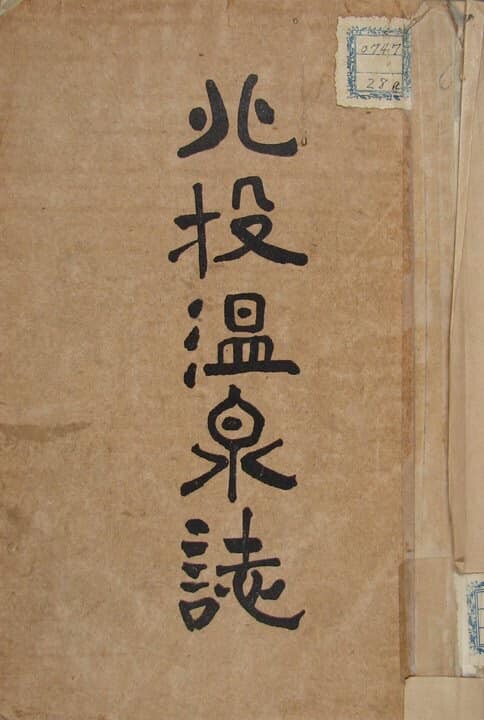 北投温泉誌
0747
28